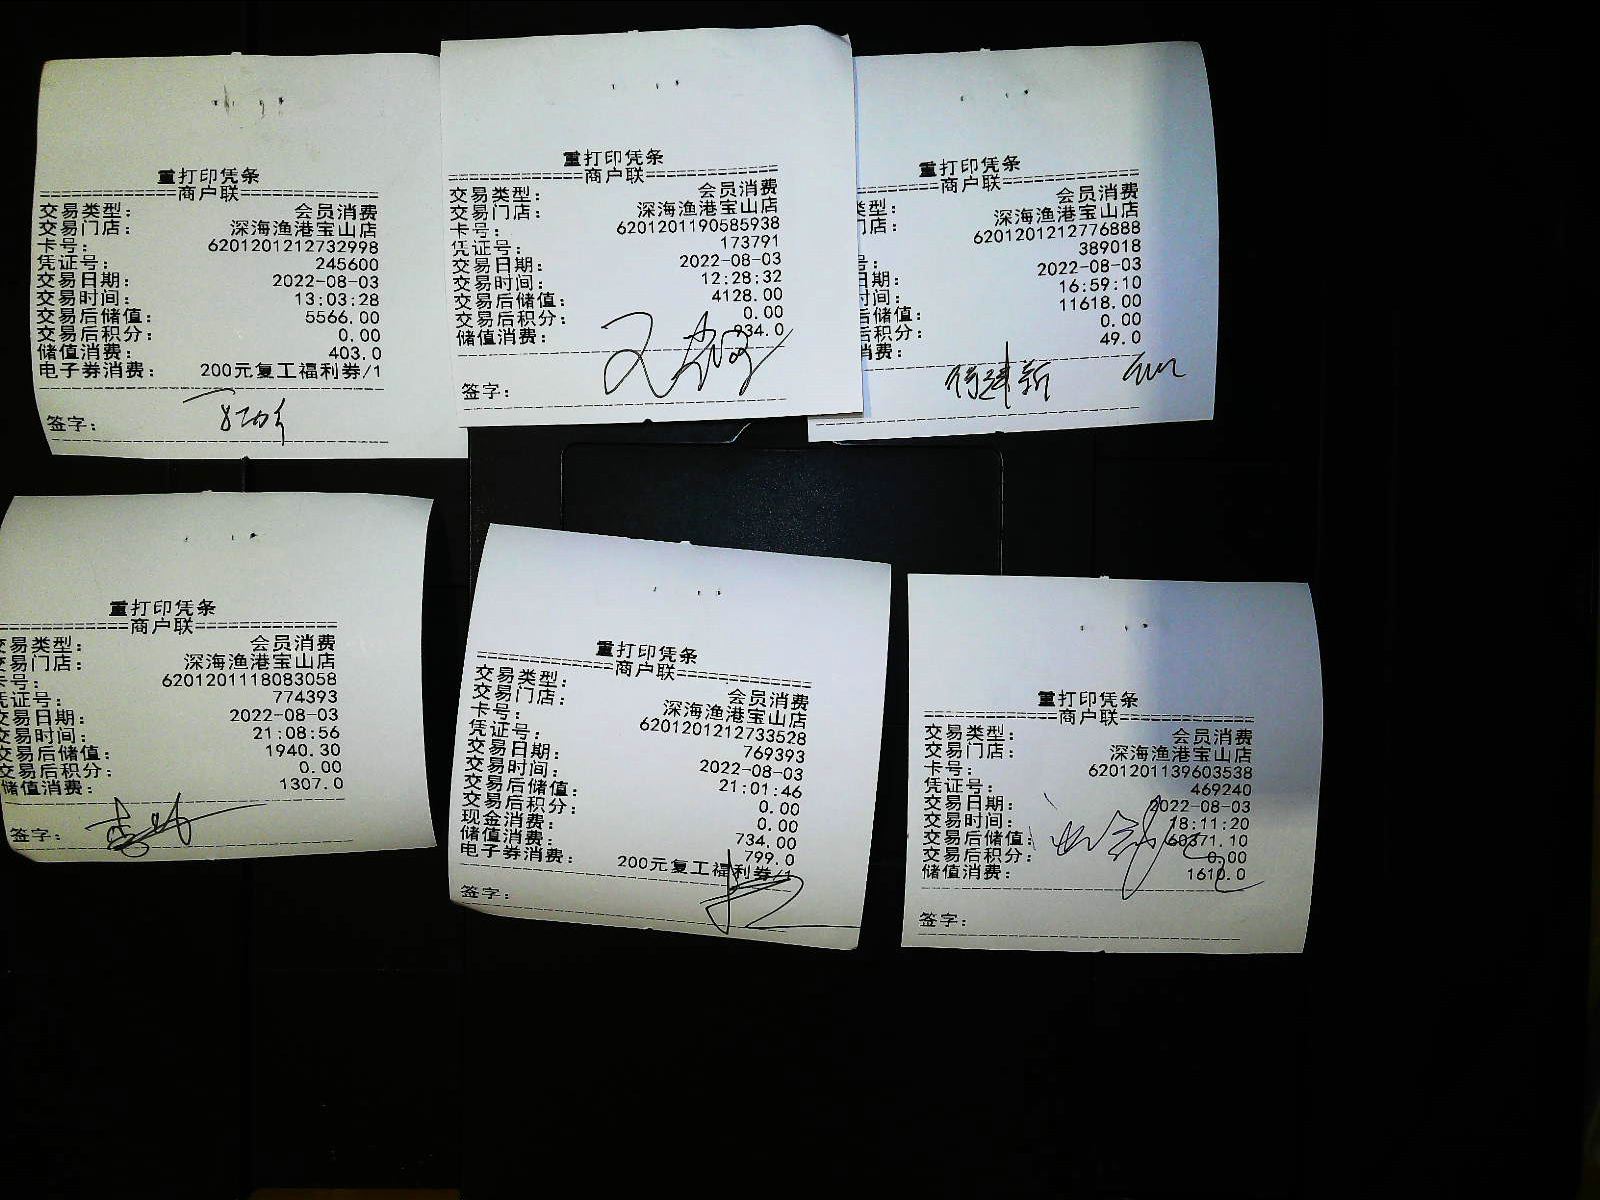 重打印凭条
============商户联============
交易类型： 会员消费
交易门店： 深海渔港宝山店
卡号： 6201201212732998
凭证号： 245600
交易日期： 2022-08-03
交易时间： 13:03:28
交易后储值： 5566.00
交易后积分： 0.00
储值消费： 403.0
电子券消费： 200元复工福利券/1
签字：
重打印凭条
============商户联============
交易类型： 会员消费
交易门店： 深海渔港宝山店
卡号： 6201201190585938
凭证号： 173791
交易日期： 2022-08-03
交易时间： 12:28:32
交易后储值： 4128.00
交易后积分： 0.00
储值消费： 934.0
签字：
重打印凭条
============商户联============
类型： 会员消费
门店： 深海渔港宝山店
6201201212776888
号： 389018
日期： 2022-08-03
时间： 16:59:10
后储值： 11618.00
后积分： 0.00
消费： 49.0
重打印凭条
============商户联============
交易类型： 会员消费
交易门店： 深海渔港宝山店
卡号： 6201201118083058
凭证号： 774393
交易日期： 2022-08-03
交易时间： 21:08:56
交易后储值： 1940.30
交易后积分： 0.00
储值消费： 1307.0
签字：
重打印凭条
============商户联============
交易类型： 会员消费
交易门店： 深海渔港宝山店
卡号： 6201201212733528
凭证号： 769393
交易日期： 2022-08-03
交易时间： 21:01:46
交易后储值： 0.00
交易后积分： 0.00
现金消费： 734.00
储值消费： 799.0
电子券消费： 200元复工福利券/1
签字：
重打印凭条
============商户联============
交易类型： 会员消费
交易门店： 深海渔港宝山店
卡号： 6201201139603538
凭证号： 469240
交易日期： 2022-08-03
交易时间： 18:11:20
交易后储值： 60371.10
交易后积分： 0.00
储值消费： 1610.0
签字：